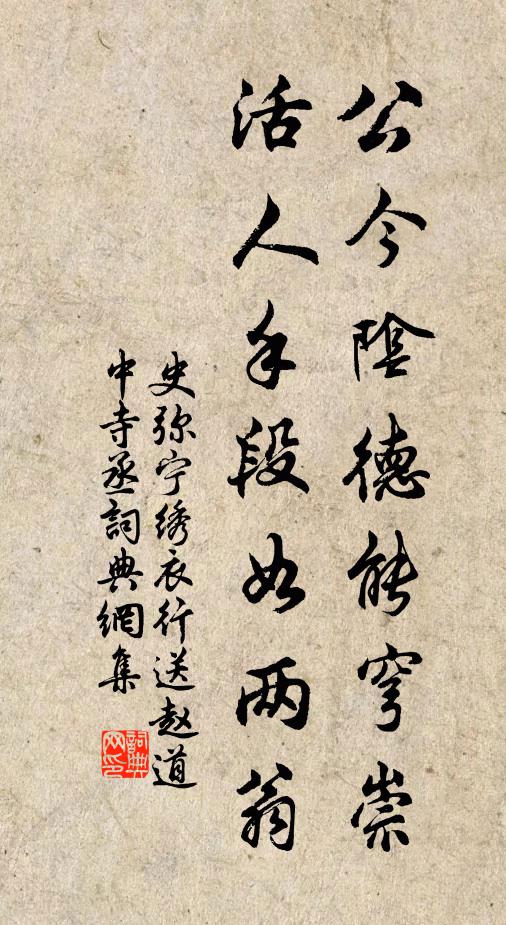 公今陰德能穹崇
活人手段如两翁
史弥宁绣衣行送赵道
中寺丞詞典網集
詞典网印